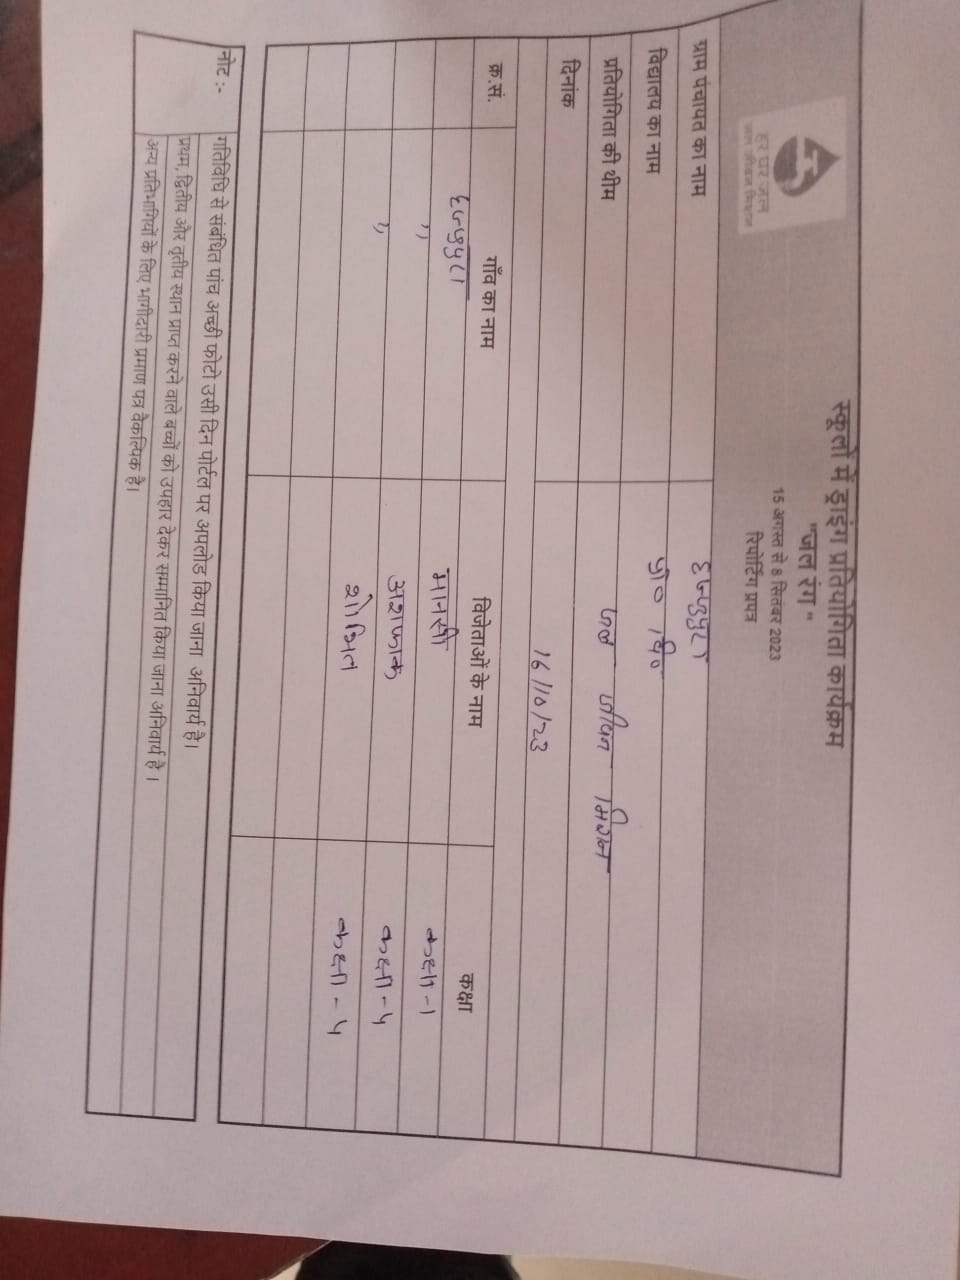 हर घर जल
जल जीवन मिशन
स्कूलों में ड्राइंग प्रतियोगिता कार्यक्रम
"जल रंग"
15 अगस्त से 8 सितंबर 2023
रिपोर्टिंग प्रपत्र
ग्राम पंचायत का नाम
विद्यालय का नाम प्रा० वि०
प्रतियोगिता की थीम जल जीवन मिशन
दिनांक 16/10/23
क्र.सं. गाँव का नाम विजेताओं के नाम कक्षा
मानसी कक्षा-1
" अशफाक कक्षा-५
" शोभित कक्षा-५
नोट :- गतिविधि से संबंधित पांच अच्छी फोटो उसी दिन पोर्टल पर अपलोड किया जाना अनिवार्य है।
प्रथम, द्वितीय और तृतीय स्थान प्राप्त करने वाले बच्चों को उपहार देकर सम्मानित किया जाना अनिवार्य है ।
अन्य प्रतिभागियों के लिए भागीदारी प्रमाण पत्र वैकल्पिक है।